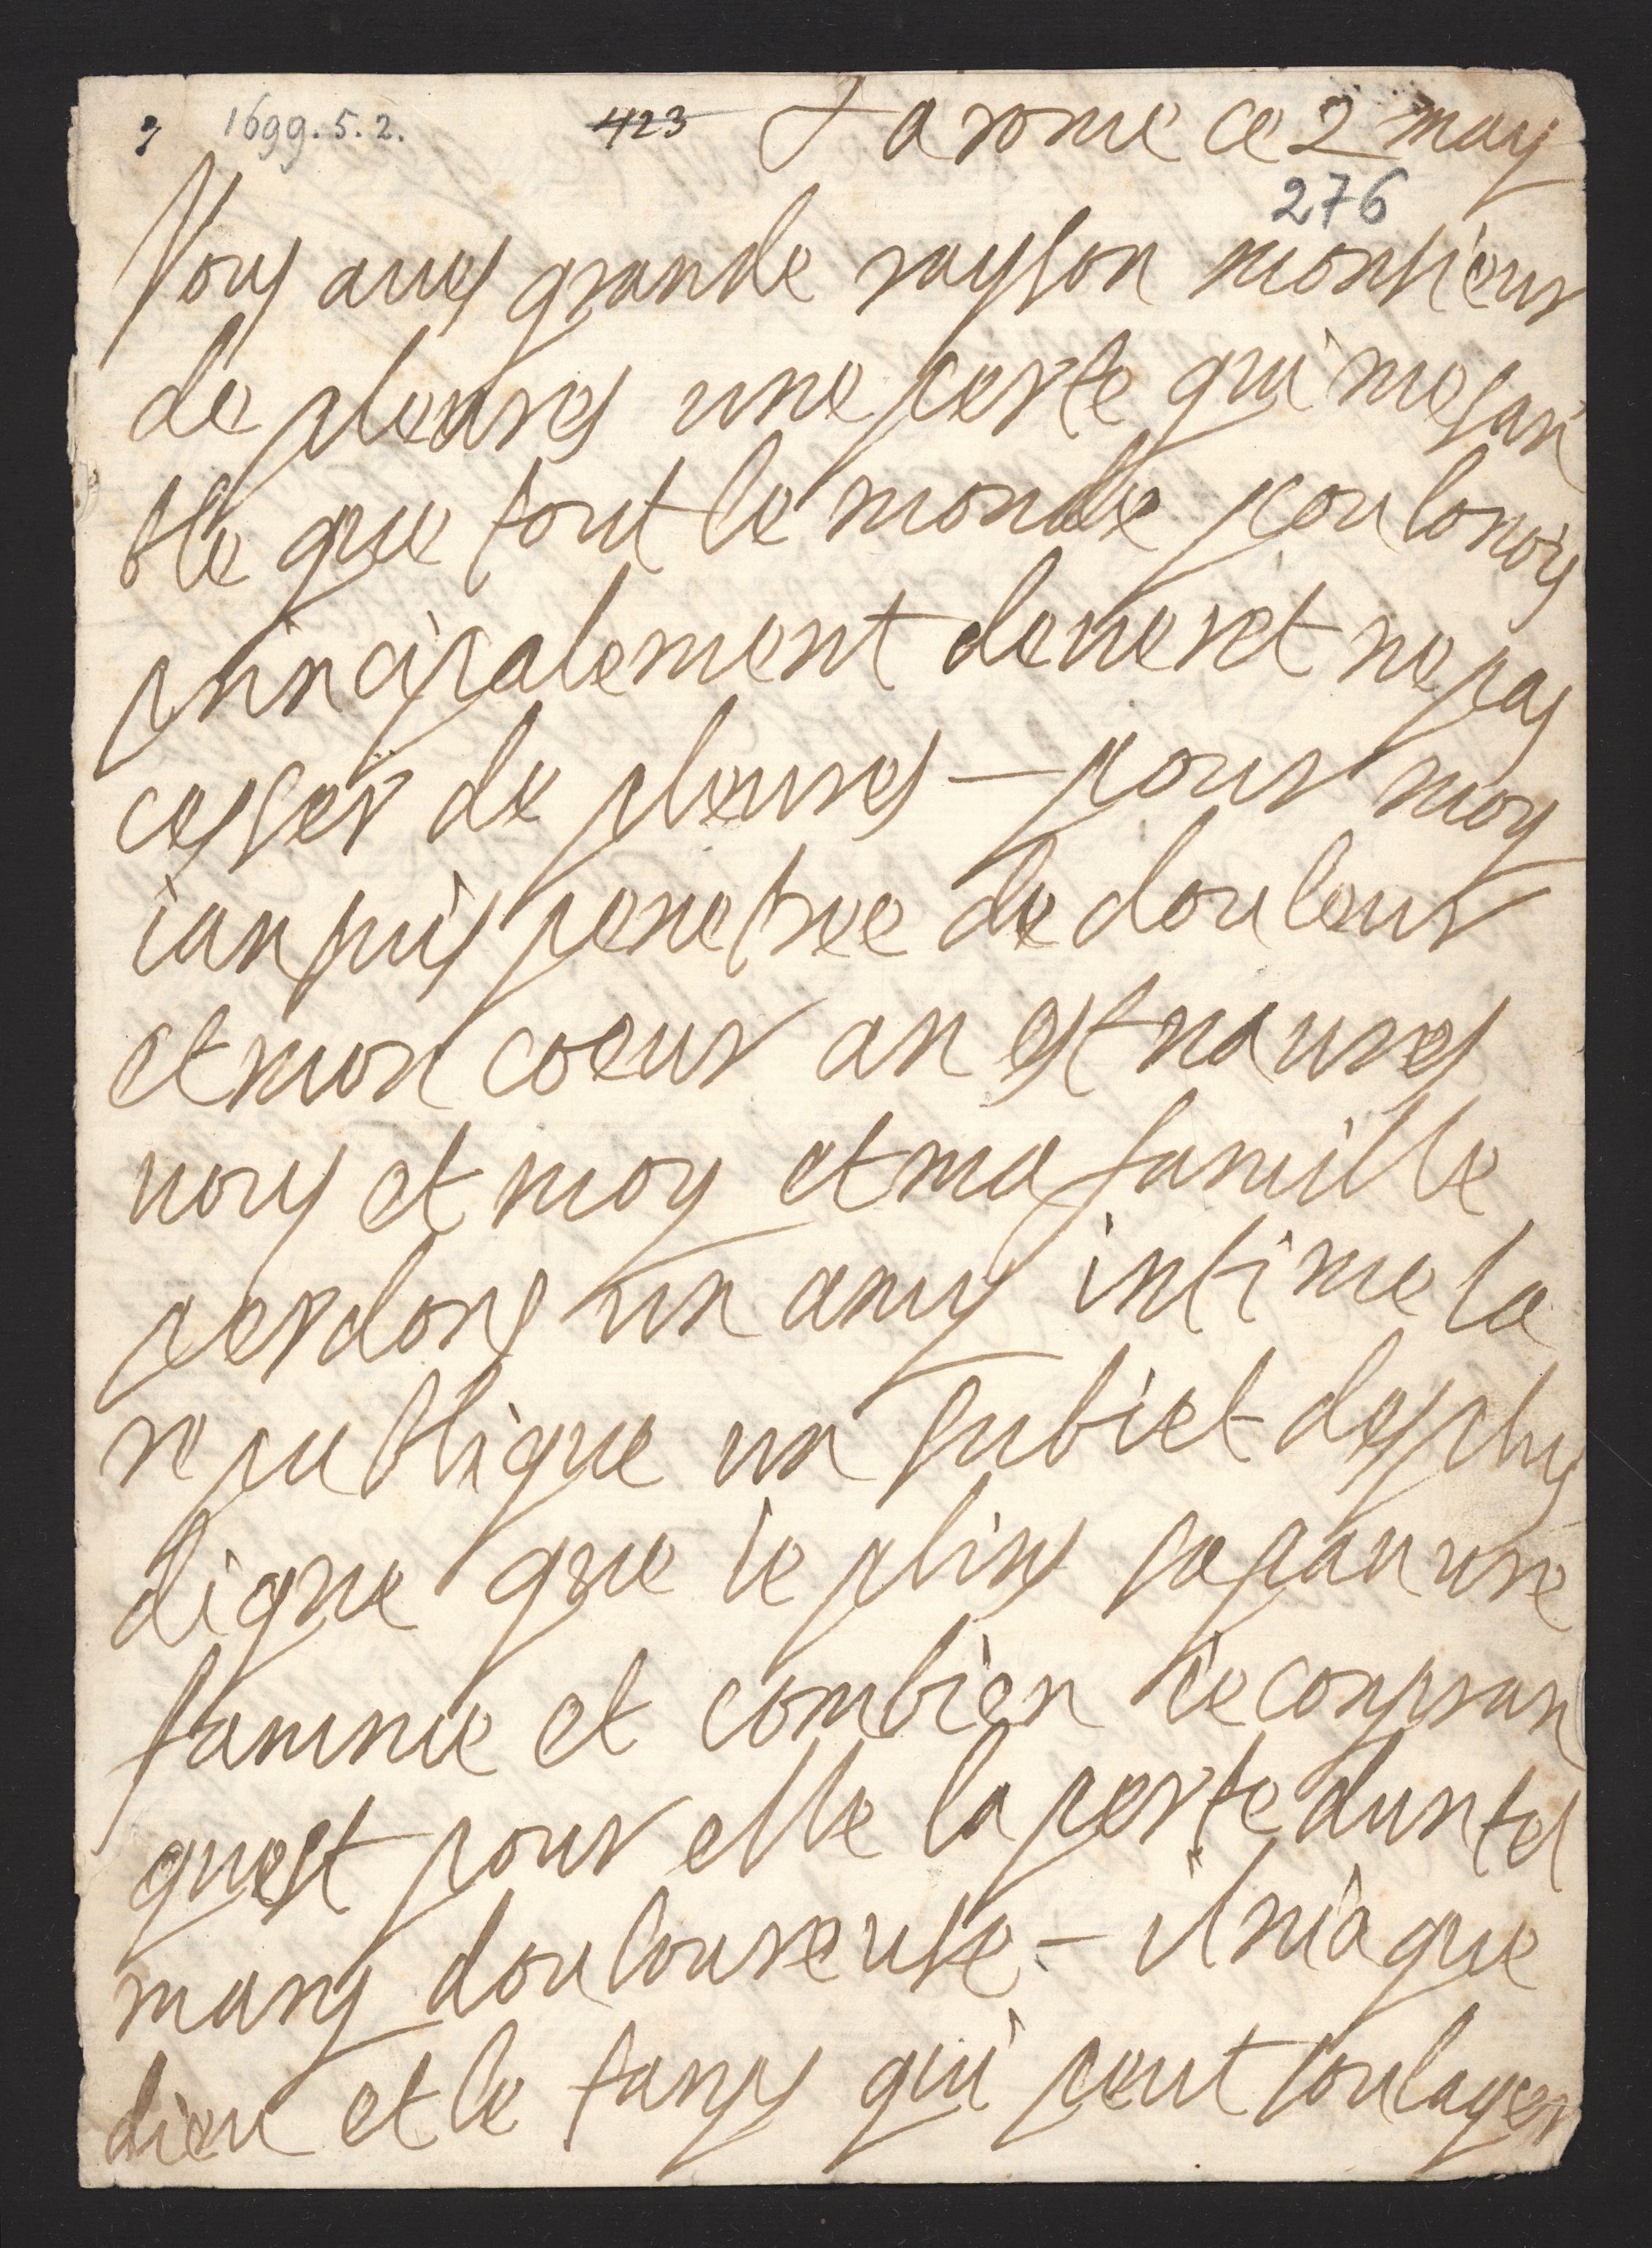 1699.5.2. 423 a rome ce 2 may
276
Vous aues grande rayson monsieur
de pleures une perte qui me san
ble que tout le monde poulonois
principalement deueret ne pas
cesser de pleures – pour moy
ian suis penetree de douleur
et mon coeur an est naures
vous et moy et ma famille
perdons un amy intime la
republique un subiet des plus
digne que ie plins sa pauure
famme et combien ie conpran
quest pour elle la perte dun tel
mary douloureuse – il nia que
dieu et le tanps qui peut soulager